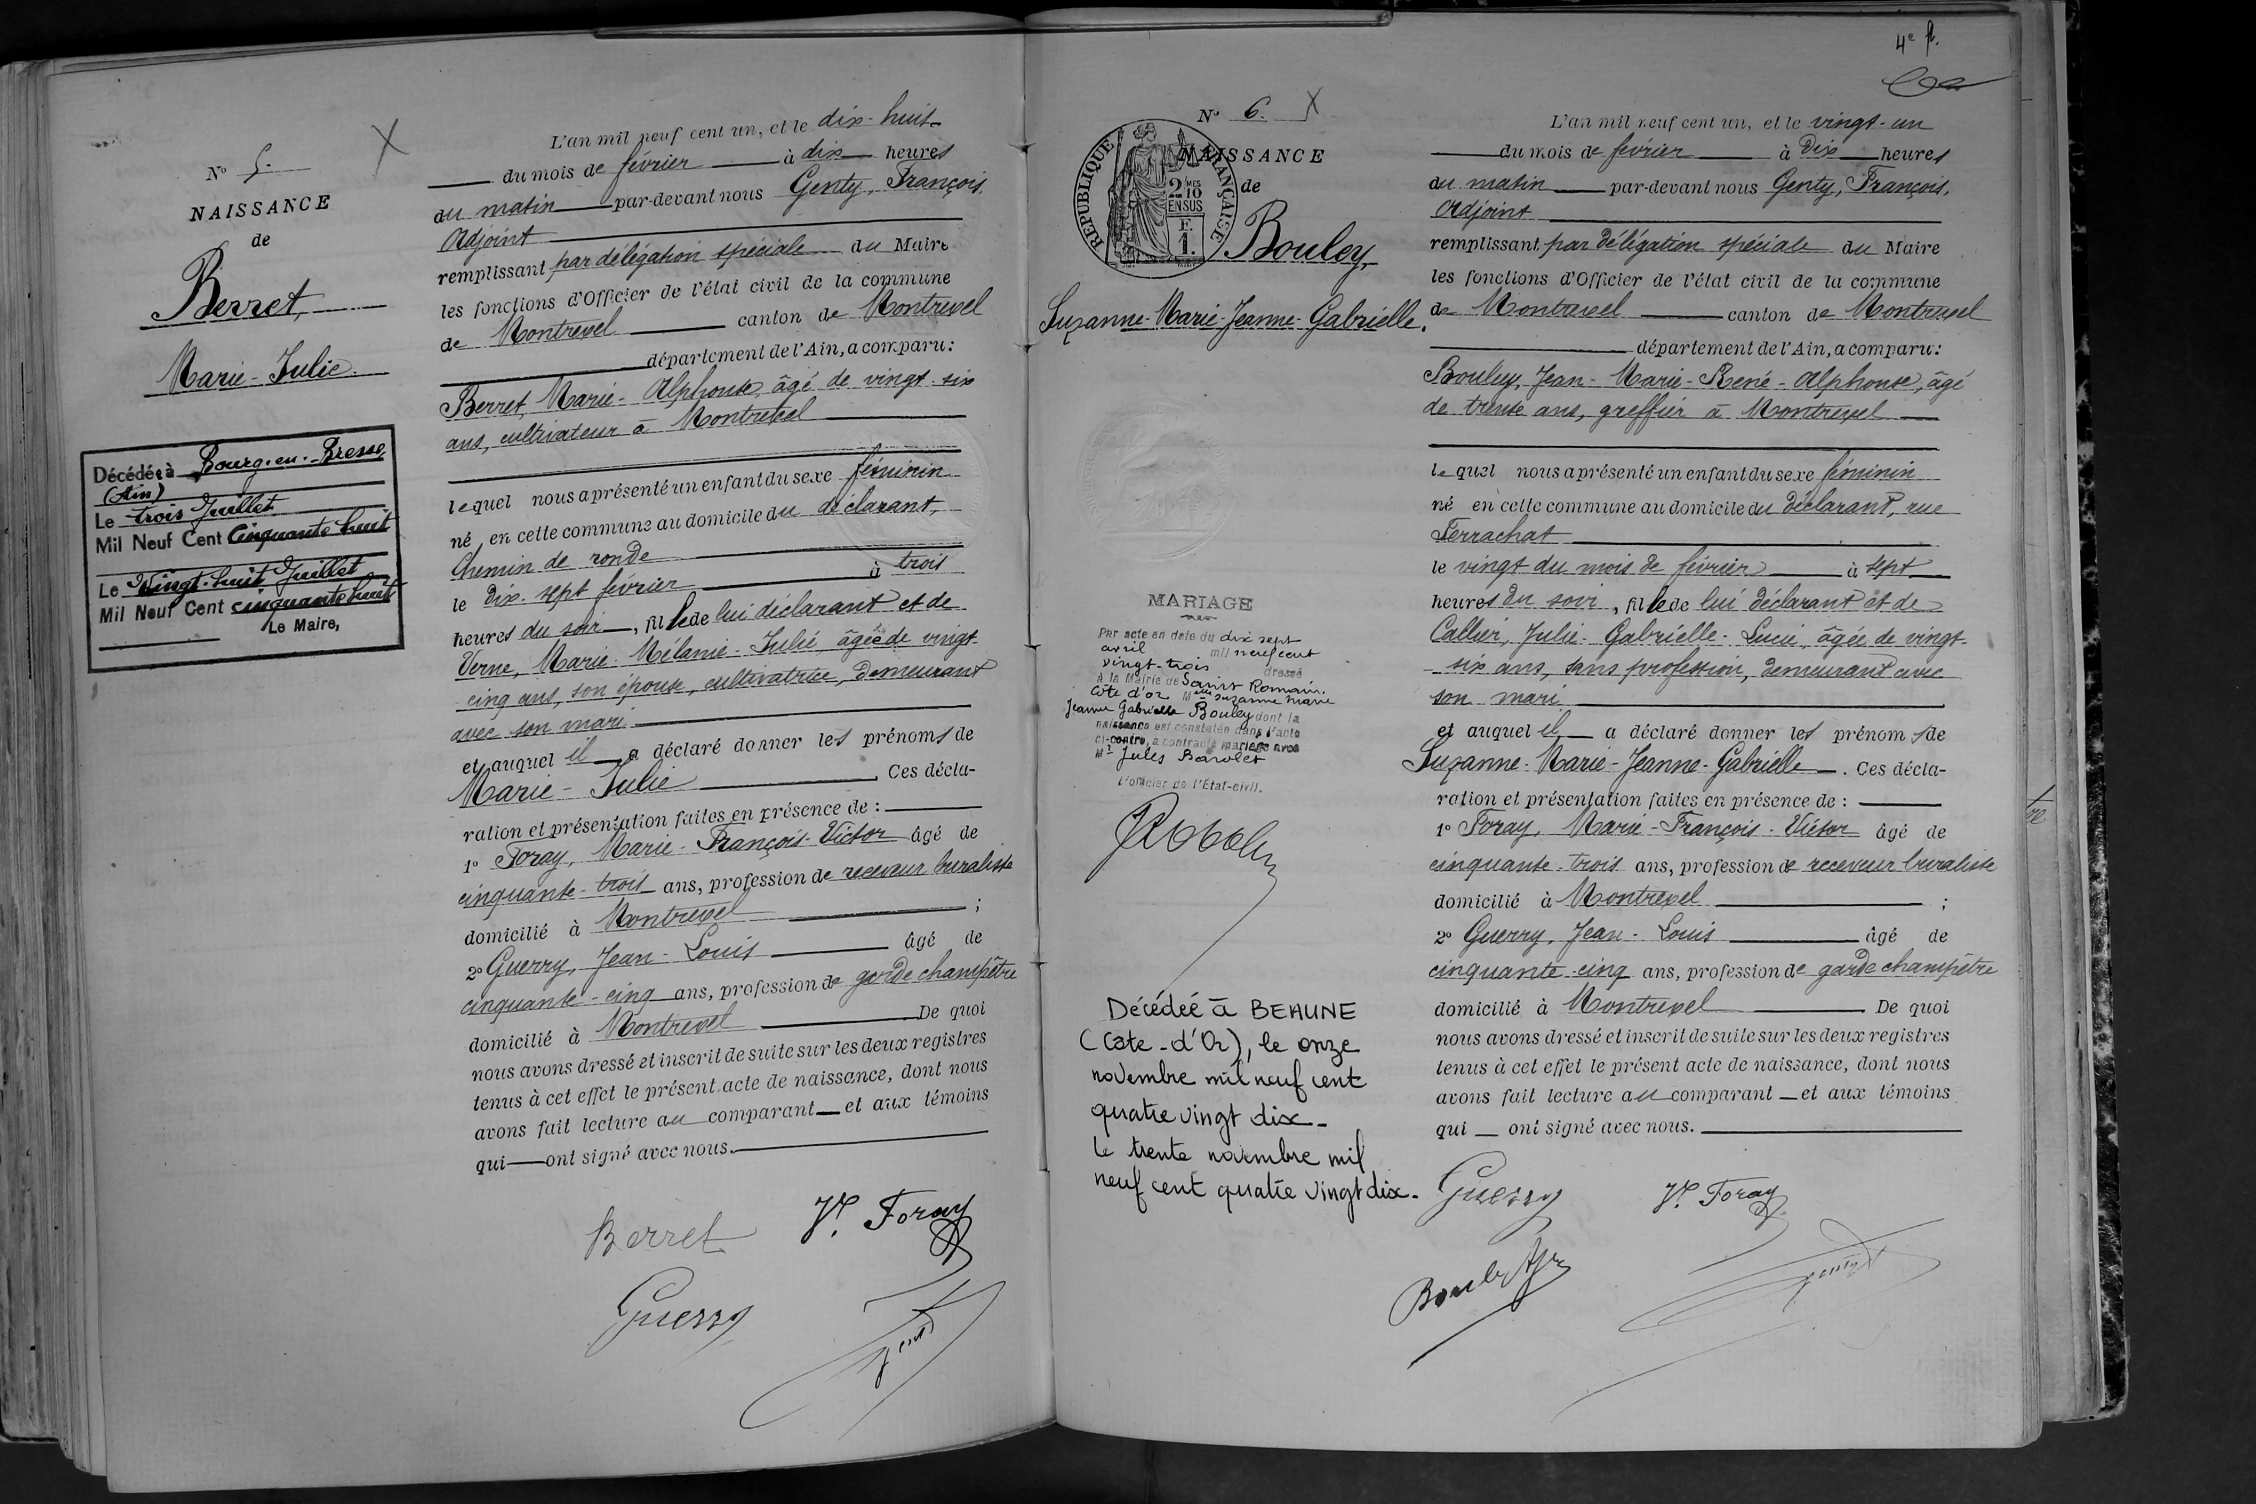 N° 5.
NAISSANCE
de
Berret,
Marie-Julie.
Décédée à Bourg-en-Bresse
(Ain)
Le trois Juillet
Mil Neuf Cent Cinquante huit
Le Vingt-huit Juillet
Mil Neuf Cent cinquante huit
Le Maire,
L'an mil neuf cent un, et le dix-huit
du mois de février à dix heures
du matin par-devant nous Genty, François,
Adjoint
remplissant par délégation spéciale du Maire
les fonctions d'Officier de l'état civil de la commune
de Montrevel canton de Montrevel
département de l'Ain, a comparu:
Berret, Marie-Alphonse, âgé de vingt-six
ans, cultivateur à Montrevel
lequel nous a présenté un enfant du sexe féminin
né en cette commune au domicile du déclarant,
Chemin de ronde
le dix-sept février à trois
heures du soir, fille de lui déclarant et de
Verne, Marie-Mélanie-Julie, âgée de vingt-
cinq ans, son épouse, cultivatrice, demeurant
avec son mari.
et auquel il a déclaré donner les prénoms de
Marie-Julie. Ces décla-
ration et présentation faites en présence de :
1° Foray, Marie-François-Victor âgé de
cinquante-trois ans, profession de receveur buraliste
domicilié à Montrevel ;
2° Guerry, Jean-Louis âgé de
cinquante-cinq ans, profession de garde champêtre
domicilié à Montrevel De quoi
nous avons dressé et inscrit de suite sur les deux registres
tenus à cet effet le présent acte de naissance, dont nous
avons fait lecture au comparant et aux témoins
qui ont signé avec nous.
Berret Vr. Foray
Guerry Genty
4e f.
N° 6.
NAISSANCE
de
RÉPUBLIQUE FRANÇAISE
2 MES
10
EN SUS
F.
1.
Bouley,
Suzanne-Marie-Jeanne-Gabrielle.
MARIAGE
Par acte en date du dix sept
avril mil neuf cent
vingt-trois dressé
à la Mairie de Saint Romain.
Côte d'or Melle Suzanne Marie
Jeanne Gabrielle Bouley dont la
naissance est constatée dans l'acte
ci-contre, a contracté mariage avec
Mr Jules Barolet
L'officier de l'Etat-civil.
Décédée à BEAUNE
(Côte-d'Or), le onze
novembre mil neuf cent
quatre vingt dix-
Le trente novembre mil
neuf cent quatre vingt dix-
L'an mil neuf cent un, et le vingt-un
du mois de février à dix heures
du matin par-devant nous Genty, François,
Adjoint
remplissant par délégation spéciale du Maire
les fonctions d'Officier de l'état civil de la commune
de Montrevel canton de Montrevel
département de l'Ain, a comparu:
Bouley, Jean-Marie-René-Alphonse, âgé
de trente ans, greffier à Montrevel
lequel nous a présenté un enfant du sexe féminin
né en cette commune au domicile du déclarant, rue
Ferrachat
le vingt du mois de février à sept
heures du soir, fille de lui déclarant et de
Callier, Julie-Gabrielle-Lucie, âgée de vingt-
-six ans, sans profession, demeurant avec
son mari
et auquel il a déclaré donner les prénoms de
Suzanne-Marie-Jeanne-Gabrielle. Ces décla-
ration et présentation faites en présence de :
1° Foray, Marie-François-Victor âgé de
cinquante-trois ans, profession de receveur buraliste
domicilié à Montrevel ;
2° Guerry, Jean-Louis âgé de
cinquante-cinq ans, profession de garde champêtre
domicilié à Montrevel De quoi
nous avons dressé et inscrit de suite sur les deux registres
tenus à cet effet le présent acte de naissance, dont nous
avons fait lecture au comparant et aux témoins
qui ont signé avec nous.
Guerry Vr. Foray
Genty